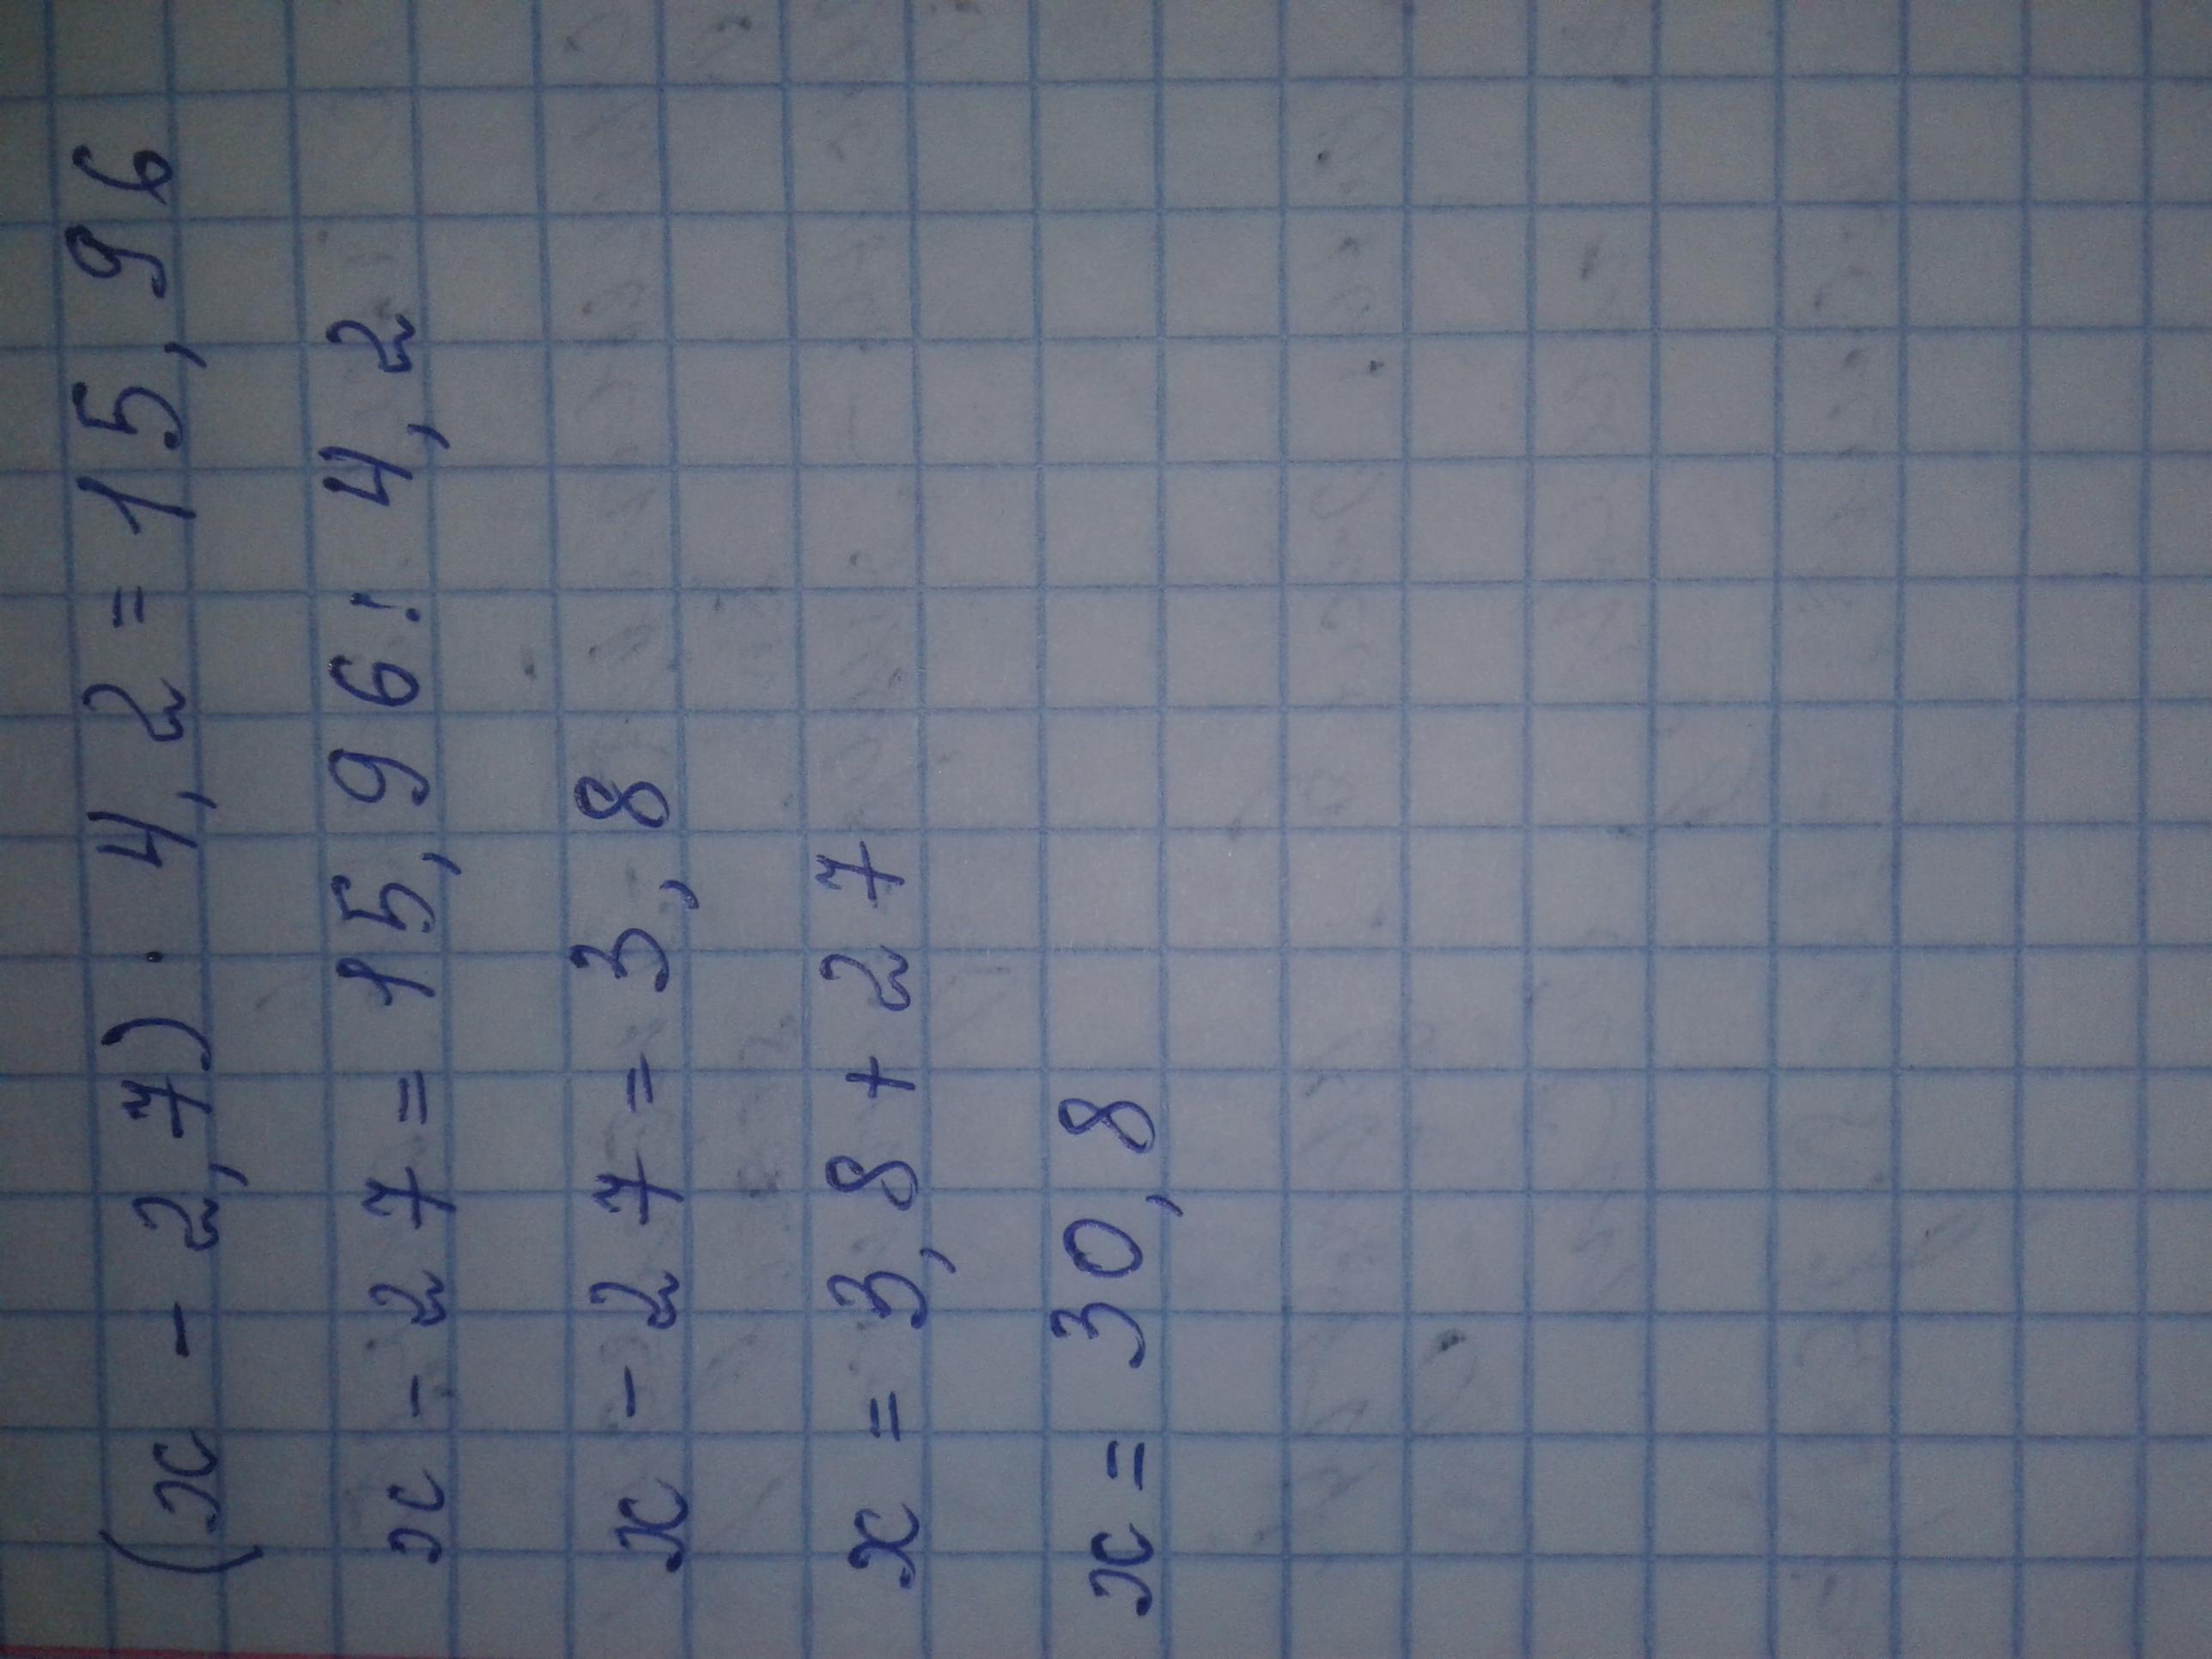 (x - 2,7) · 4,2 = 15,96
x - 27 = 15,96 : 4,2
x - 27 = 3,8
x = 3,8 + 27
x = 30,8